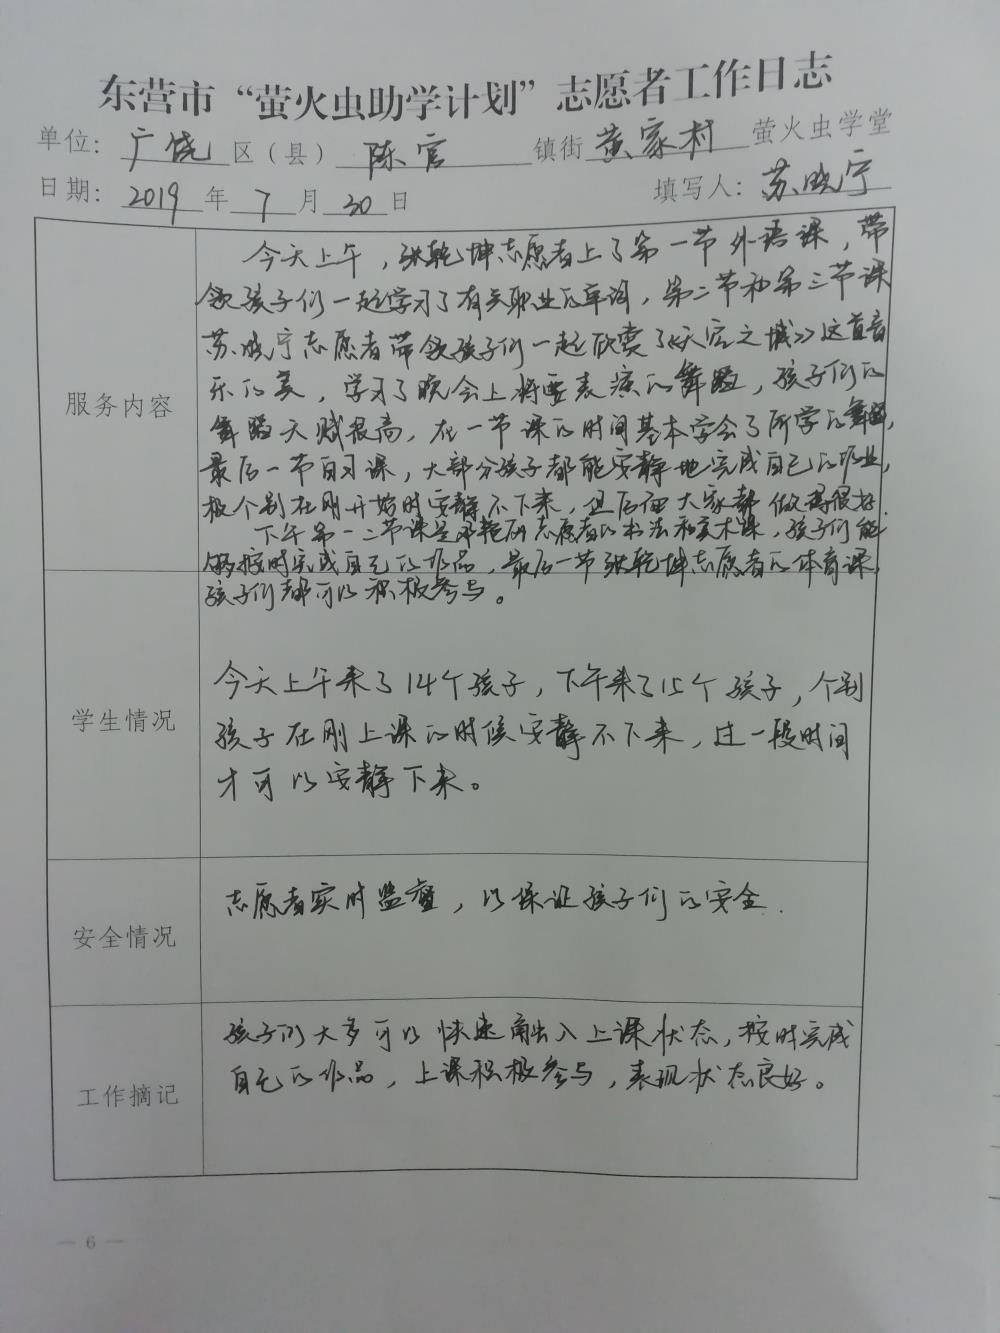 东营市“萤火虫助学计划”志愿者工作日志
单位：广饶区（县）陈官镇街黄家村萤火虫学堂
日期：2019年7月30日 填写人：苏晓宁
服务内容
今天上午，张乾坤志愿者上了第一节外语课，带
领孩子们一起学习了有关职业的单词，第二节和第三节课
苏晓宁志愿者带领孩子们一起欣赏了《天空之城》这首音
乐的美，学习了晚会上将要表演的舞蹈，孩子们的
舞蹈天赋很高，在一节课的时间基本学会了所学的舞蹈，
最后一节自习课，大部分孩子都能安静地完成自己的作业，
极个别在刚开始时安静不下来，但后面大家都做得很好
下午第一二节课是邓艳研志愿者的书法和美术课，孩子们能
够按时完成自己的作品，最后一节张乾坤志愿者的体育课，
孩子们都可以积极参与。
学生情况
今天上午来了14个孩子，下午来了15个孩子，个别
孩子在刚上课的时候安静不下来，过一段时间
才可以安静下来。
安全情况
志愿者实时监督，以保证孩子们的安全.
工作摘记
孩子们大多可以快速融入上课状态，按时完成
自己的作品，上课积极参与，表现状态良好。
— 6 —